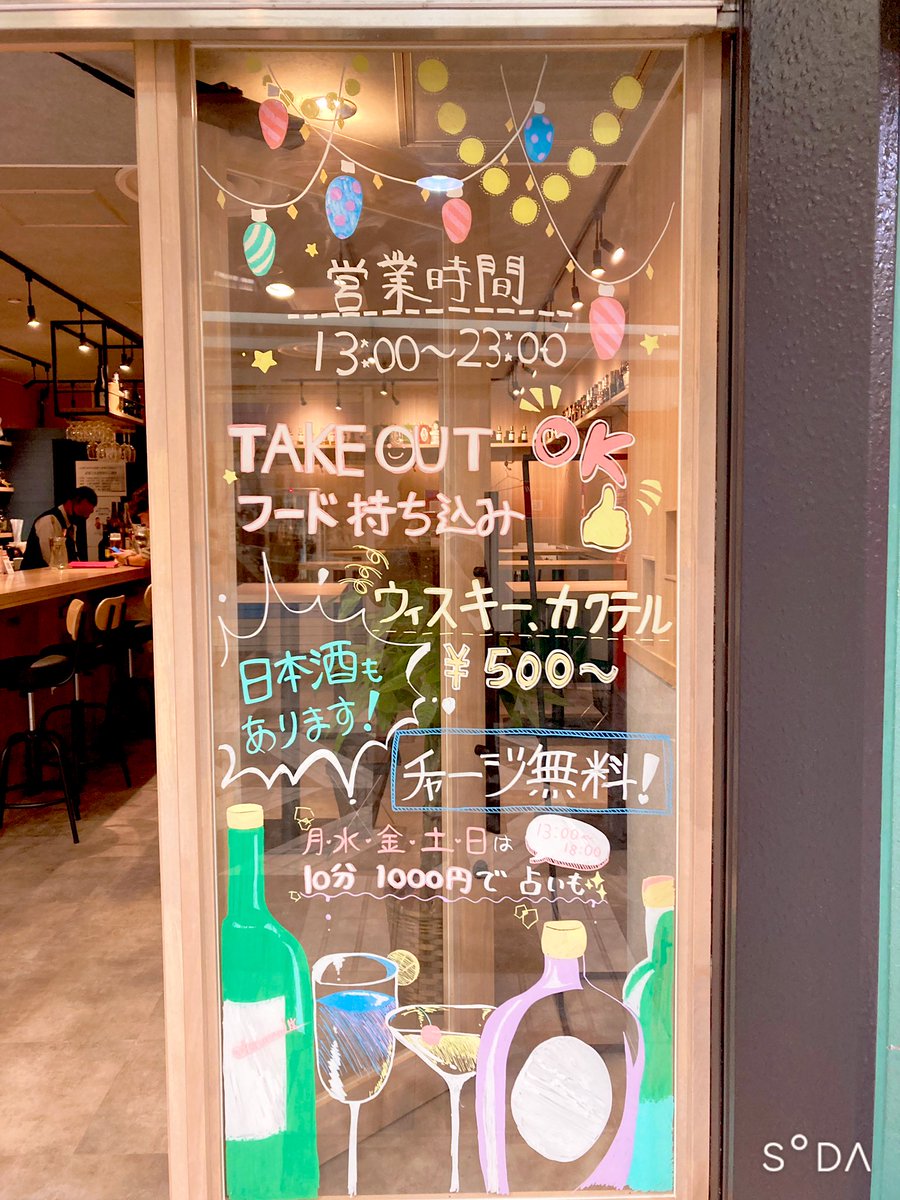 営業時間
13:00～23:00
TAKE OUT OK
フード持ち込み
ウィスキー、カクテル
¥500～
日本酒も
あります!
チャージ無料!
月・水・金・土・日は
13:00～
18:00
10分 1000円で 占いも
SODA